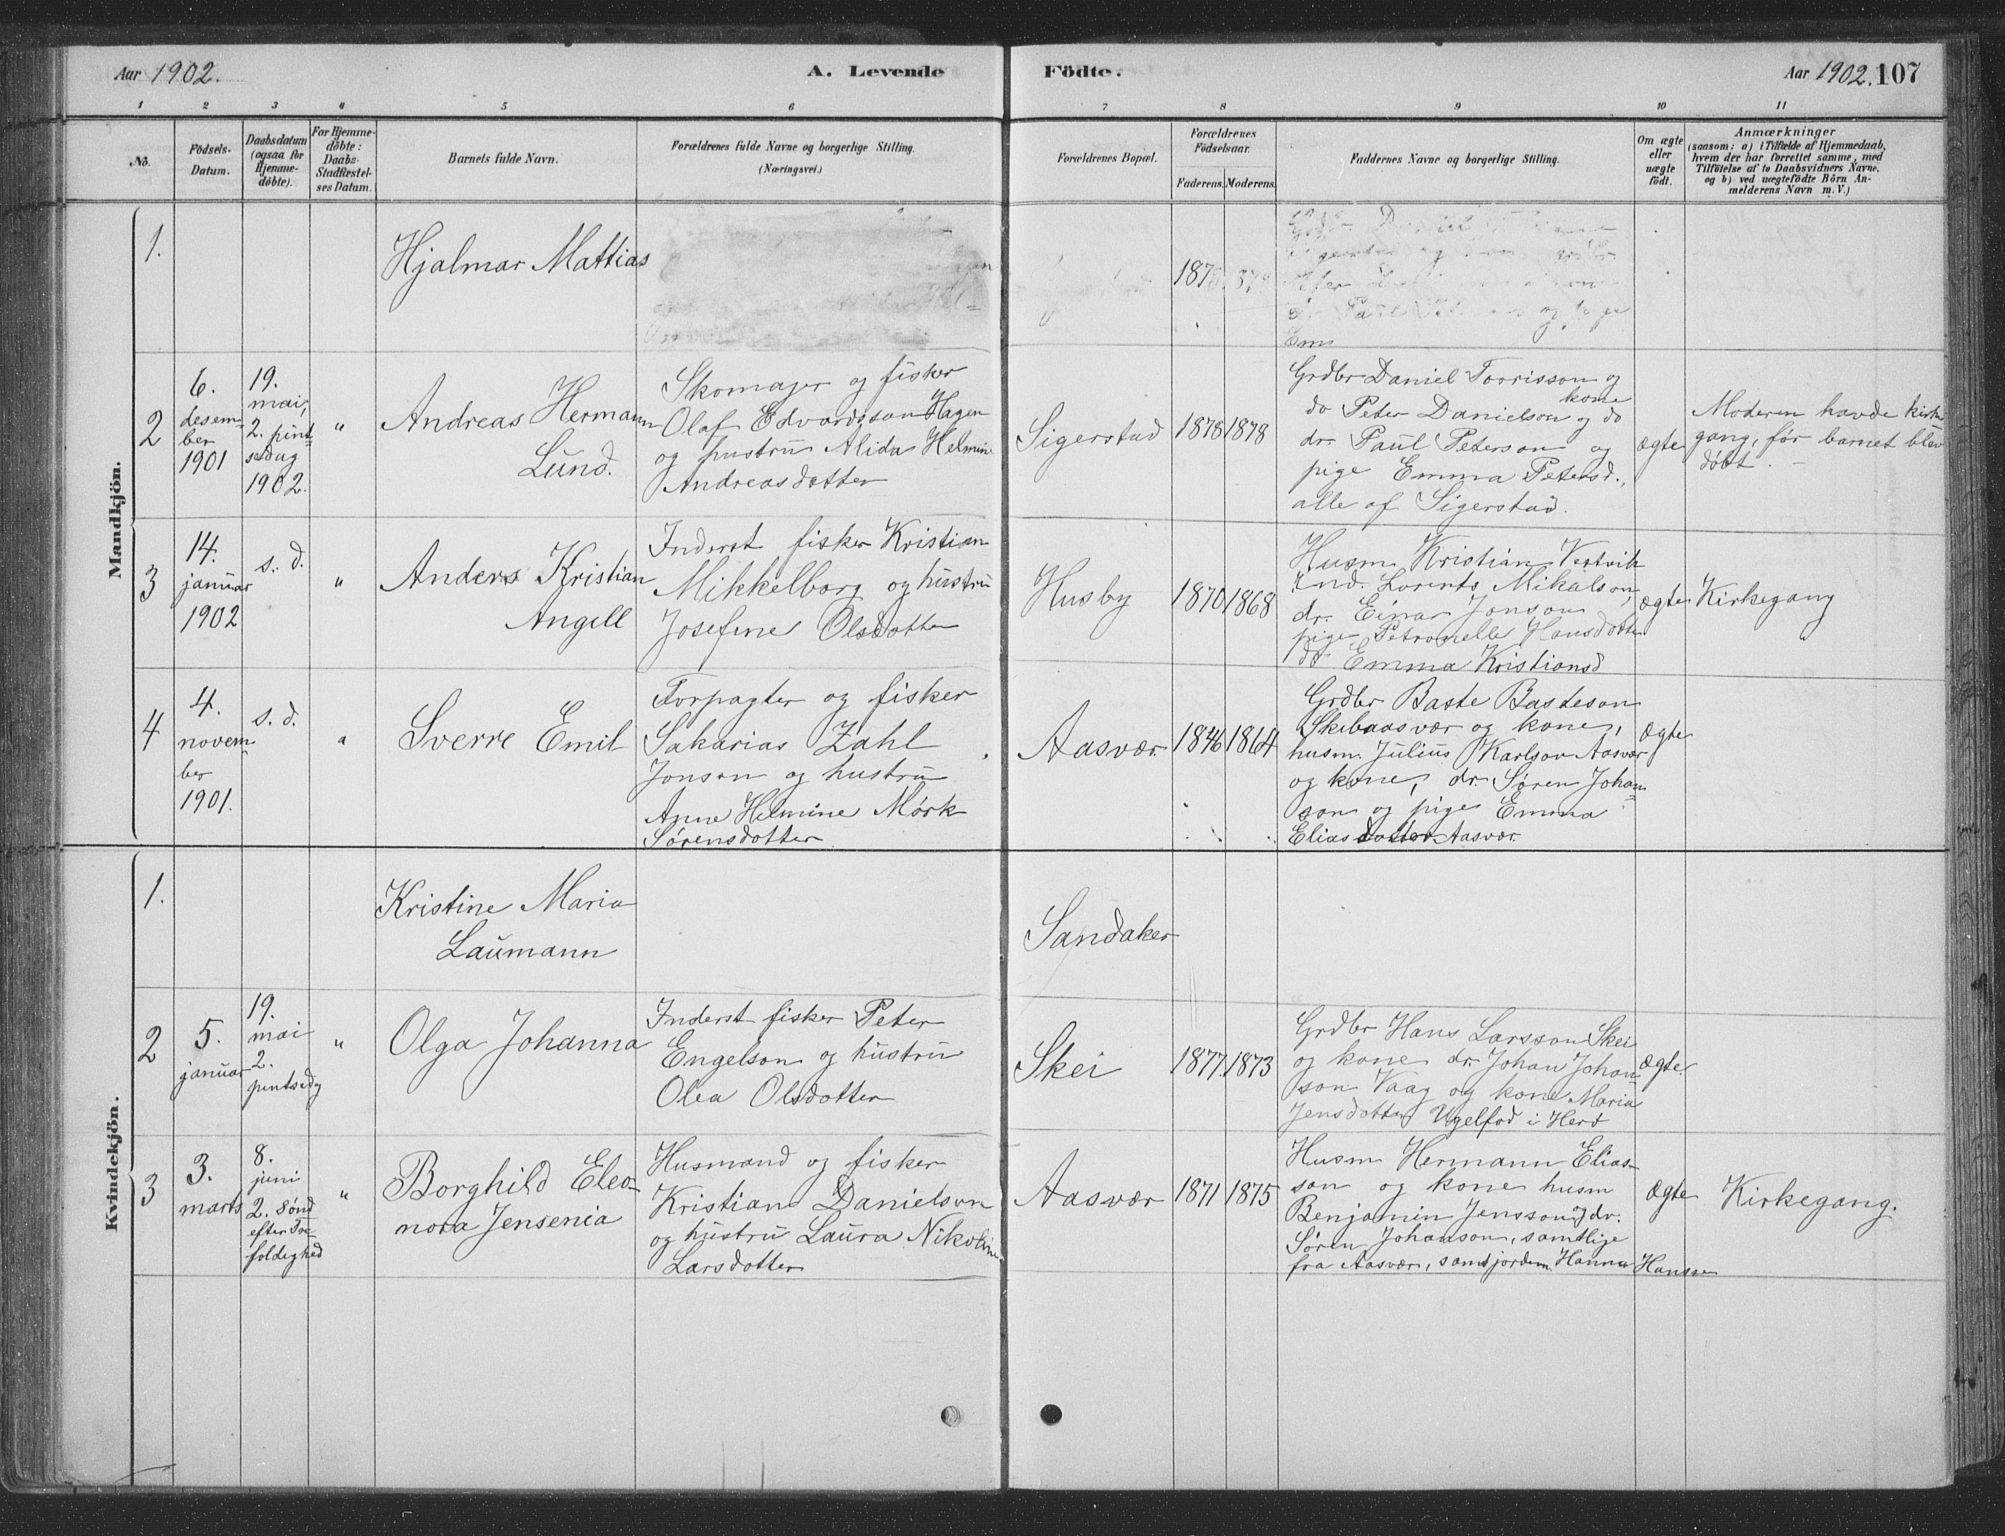 Aar 1902.
A. Levende
Födte.
Aar 1902. 107
1 2 3 4 5 6 7 8 9 10 11
No.
Födsels-
Datum.
Daabsdatum
(ogsaa for
Hjemme-
döbte).
For Hjemme-
döbte:
Daabs-
Stadfæstel-
ses Datum.
Barnets fulde Navn.
Forældrenes fulde Navne og borgerlige Stilling.
(Næringsvei.)
Forældrenes Bopæl.
Forældrenes
Födselsaar.
Faderens. Moderens.
Faddernes Navne og borgerlige Stilling.
Om ægte
eller
uægte
födt.
Anmærkninger
(saasom: a) i Tilfælde af Hjemmedaab,
hvem der har forrettet samme, med
Tilföielse af to Daabsvidners Navne,
og b) ved uægtefödte Börn An-
melderens Navn m. V.)
Mandkjön.
1.
Hjalmar Mattias
Paul
og
Em
2
6.
desem-
ber
1901
19.
mai,
2. pint-
sedag
1902.
"
Andreas Hermann
Lund.
Skomager og fisker
Olaf Edvardsson Hagen
og hustru Alida Helmine
Andreasdotter
Sigerstad
1878
1878
Grdbr Daniel Toorisson og
kone
do Peter Danielson og do
dr. Paul Peterson og
pige Emma Petersd.,
alle af Sigerstad.
ægte
Moderen havde kirke
gang, før barnet blev
døbt. -
3
14.
januar
1902
s. d.
"
Anders Kristian
Angell
Inderst fisker Kristian
Mikkelborg og hustru
Josefine Olsdotter
Husby
1870
1868
Husm Kristian Vestvik
Ind. Lorents Mikalson,
dr. Einar Jonson
pige Petronelle Hansdotter
do Emma Kristiansd
ægte
Kirkegang
4
4.
novem-
ber
1901.
s. d.
"
Sverre Emil
Forpagter og fisker
Sakarias Zahl
Jonson og hustru
Anne Helmine Mørk
Sørensdotter
Aasvær
1846
1864
Grdbr Baste Basteson
Skibaasvær og kone,
husm. Julius Karlson Aasvær
og kone, dr. Søren Johan-
son og pige Emma
Eliasdotter Aasvær.
ægte
Kvindekjön.
1.
Kristine Maria
Laumann
Sandaker
2
5.
januar
19.
mai
2.
pintsedg
"
Olga Johanna
Inderst fisker Peter
Engelson og hustru
Olea Olsdotter
Skei
1877.
1873
Grdbr Hans Larsson Skei
og kone dr. Johan Johan-
son Vaag og kone Maria
Jensdotter Ugelfod i Herö
ægte.
3
3.
marts
8.
juni
2. sønd
efter Tre-
foldighed
"
Borghild Eleo-
nora Jensenia
Husmand og fisker
Kristian Danielson
og hustru Laura Nikoline
Larsdotter
Aasvær
1871
1875
Husm Hermann Elias-
son og kone husm
Benjamin Jensson, dr.
Søren Johanson, samtlige
fra Aasvær, samt jordem. Hanna Hanssen
ægte
Kirkegang.